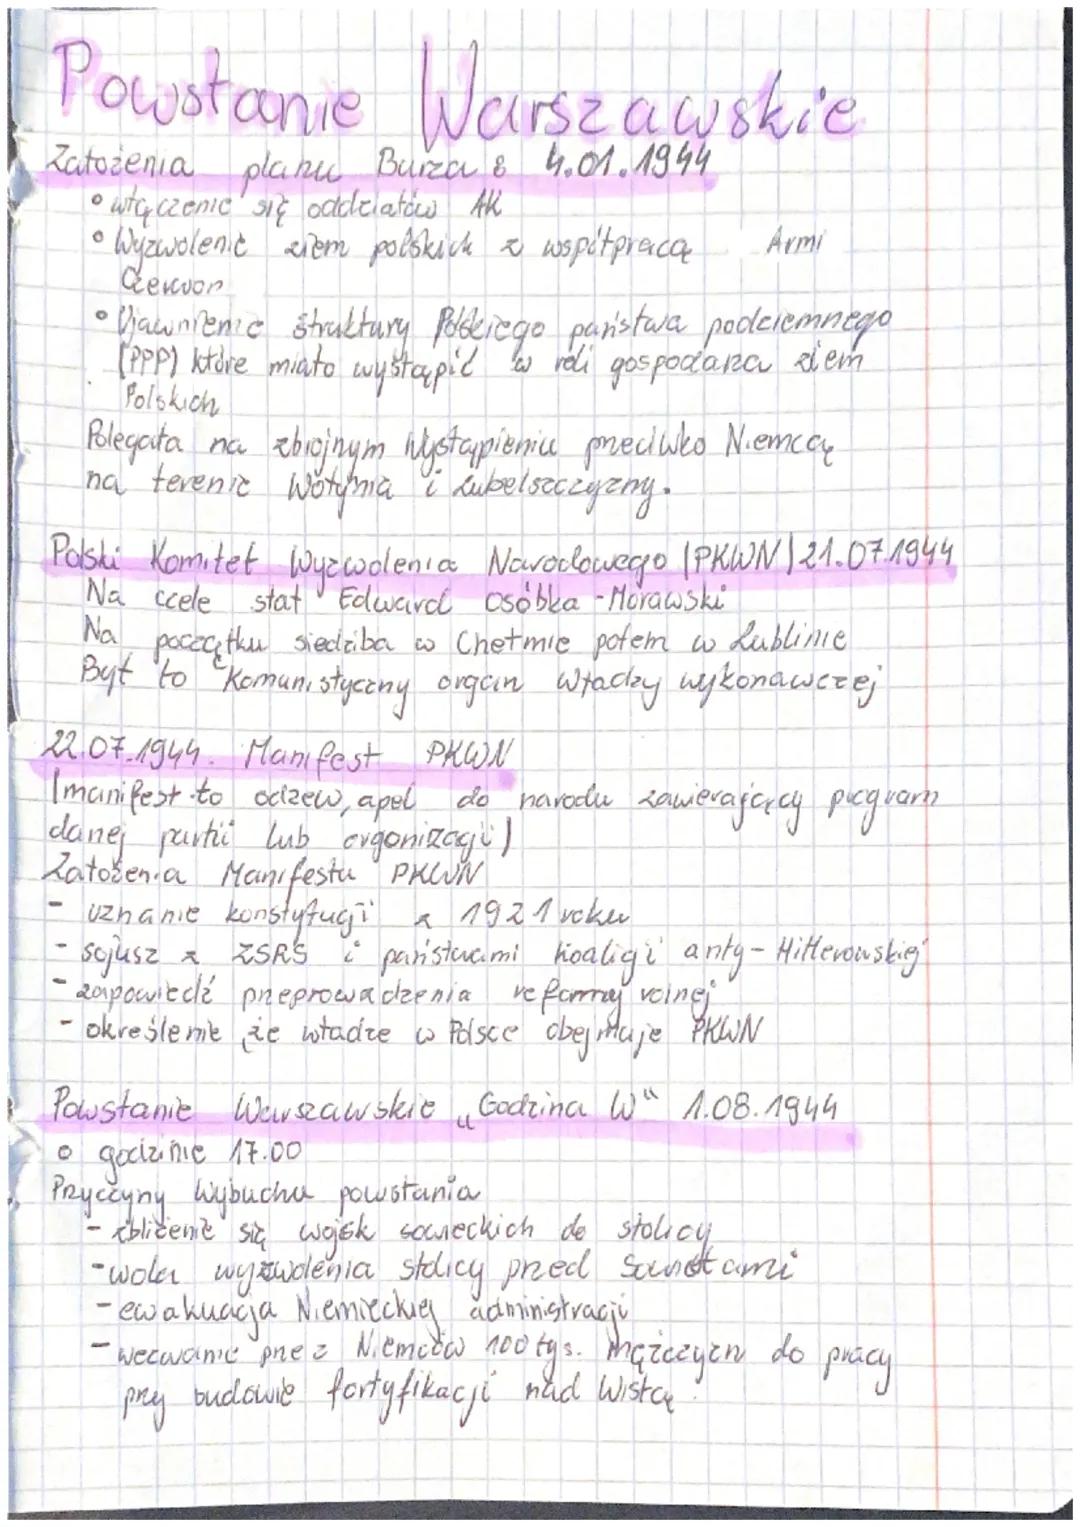 Powstanie Warszawskie
Założenia planu Burza : 4.01.1944
• włączenie się oddziałów AK
• Wyzwolenie ziem polskich z współpracą Armi
Czerwon
• Ujawnienie struktury Polskiego państwa podziemnego
(PPP) które miało wystąpić w roli gospodarza ziem
Polskich
Polegała na zbrojnym wystąpieniu przeciwko Niemcą
na terenie Wołynia i Lubelszczyzny.
Polski Komitet Wyzwolenia Narodowego (PKWN) 21.07.1944
Na czele stał Edward Osóbka-Morawski
Na początku siedziba w Chełmie potem w Lublinie
Był to Komunistyczny organ władzy wykonawczej
22.07.1944. Manifest PKWN
(manifest to odzew, apel do narodu zawierający program
danej partii lub organizacji)
Założenia Manifestu PKWN
- uznanie konstytucji z 1921 roku
- sojusz z ZSRS i państwami koalicji anty-Hitlerowskiej
- zapowiedź przeprowadzenia reformy rolnej
- określenie że władze w Polsce obejmuje PKWN
Powstanie Warszawskie „Godzina W“ 1.08.1944
o godzinie 17.00
Przyczyny wybuchu powstania
- zbliżenie się wojsk sowieckich do stolicy
- wola wyzwolenia stolicy przed Sowietami
- ewakuacja Niemieckiej administracji
- wezwanie przez Niemców 100 tys. mężczyzn do pracy
przy budowie fortyfikacji nad Wisłą.